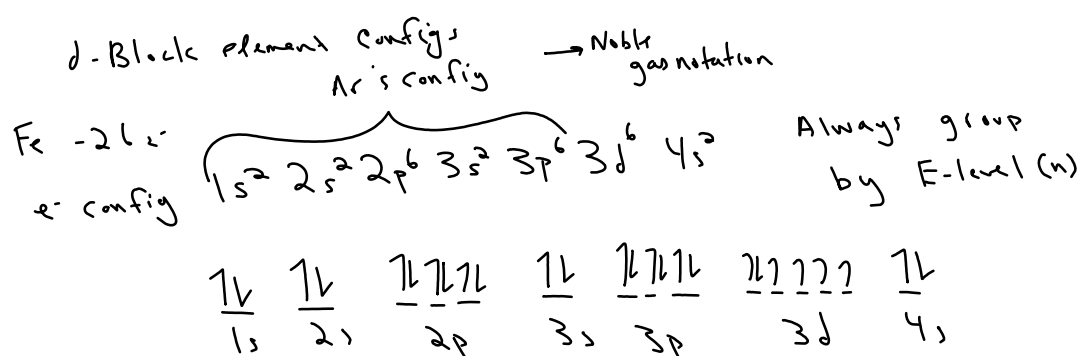 d-Block element configs → Noble gas notation
Ar's config
Fe - 26 e⁻
e⁻ config
1s² 2s² 2p⁶ 3s² 3p⁶ 3d⁶ 4s²
Always group
by E-level (n)
1s 2s 2p 3s 3p 3d 4s